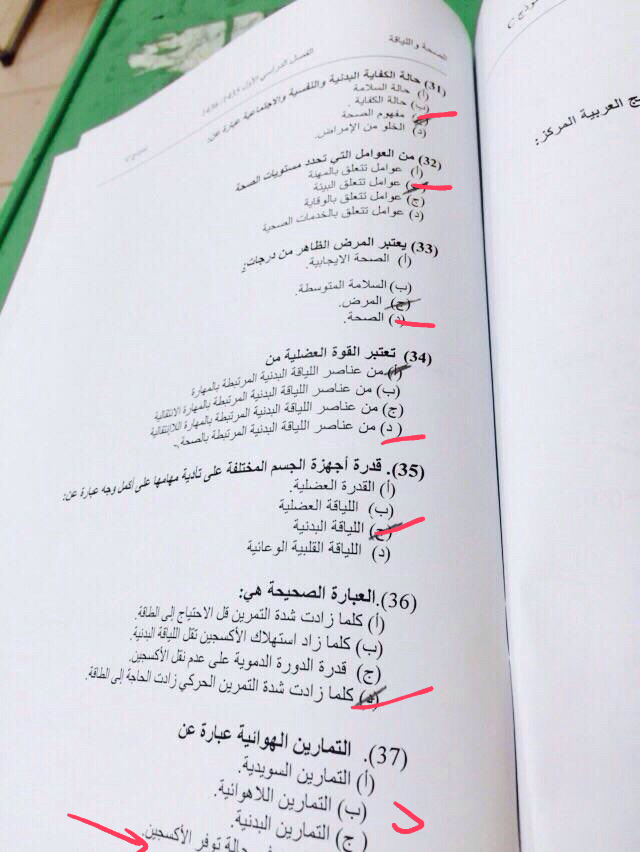 الصحة واللياقة
الفصل الدراسي الأول 1435-1436
(31) حالة الكفاية البدنية والنفسية والاجتماعية عبارة عن:
(أ) حالة السلامة
(ب) حالة الكفاية.
(ج) مفهوم الصحة
(د) الخلو من الإمراض.
(32) من العوامل التي تحدد مستويات الصحة
(أ) عوامل تتعلق بالمهنة
(ب) عوامل تتعلق البيئة
(ج) عوامل تتعلق بالوقاية
(د) عوامل تتعلق بالخدمات الصحية
(33) يعتبر المرض الظاهر من درجات:
(أ) الصحة الايجابية.
(ب) السلامة المتوسطة.
(ج) المرض.
(د) الصحة.
(34) تعتبر القوة العضلية من
(أ) من عناصر اللياقة البدنية المرتبطة بالمهارة
(ب) من عناصر اللياقة البدنية المرتبطة بالمهارة الانتقالية
(ج) من عناصر اللياقة البدنية المرتبطة بالمهارة اللاانتقالية
(د) من عناصر اللياقة البدنية المرتبطة بالصحة.
(35). قدرة أجهزة الجسم المختلفة على تأدية مهامها على أكمل وجه عبارة عن:
(أ) القدرة العضلية.
(ب) اللياقة العضلية
(ج) اللياقة البدنية
(د) اللياقة القلبية الوعائية
(36).العبارة الصحيحة هي:
(أ) كلما زادت شدة التمرين قل الاحتياج إلى الطاقة.
(ب) كلما زاد استهلاك الأكسجين تقل اللياقة البدنية.
(ج) قدرة الدورة الدموية على عدم نقل الأكسجين.
(د) كلما زادت شدة التمرين الحركي زادت الحاجة إلى الطاقة.
(37). التمارين الهوائية عبارة عن
(أ) التمارين السويدية.
(ب) التمارين اللاهوائية.
(ج) التمارين البدنية.
حالة توفر الأكسجين.
نموذج C
ج العربية المركز: